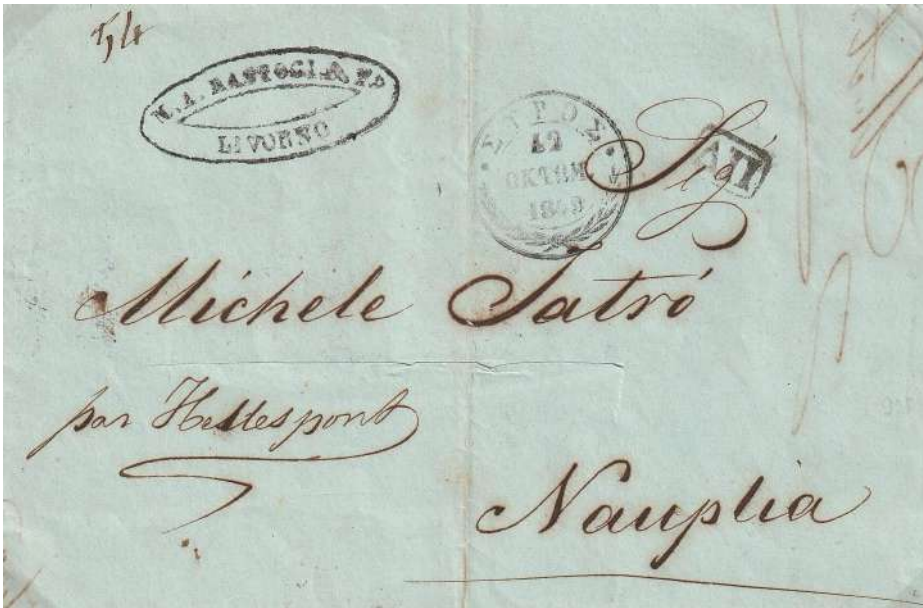 M. A. BASTOGI & F.º
LIVORNO
ΣΥΡΟΣ
12
ΟΚΤΩΜ.
1849
Sig
ΑΠ
Michele Iatró
par Hellespont
Nauplia